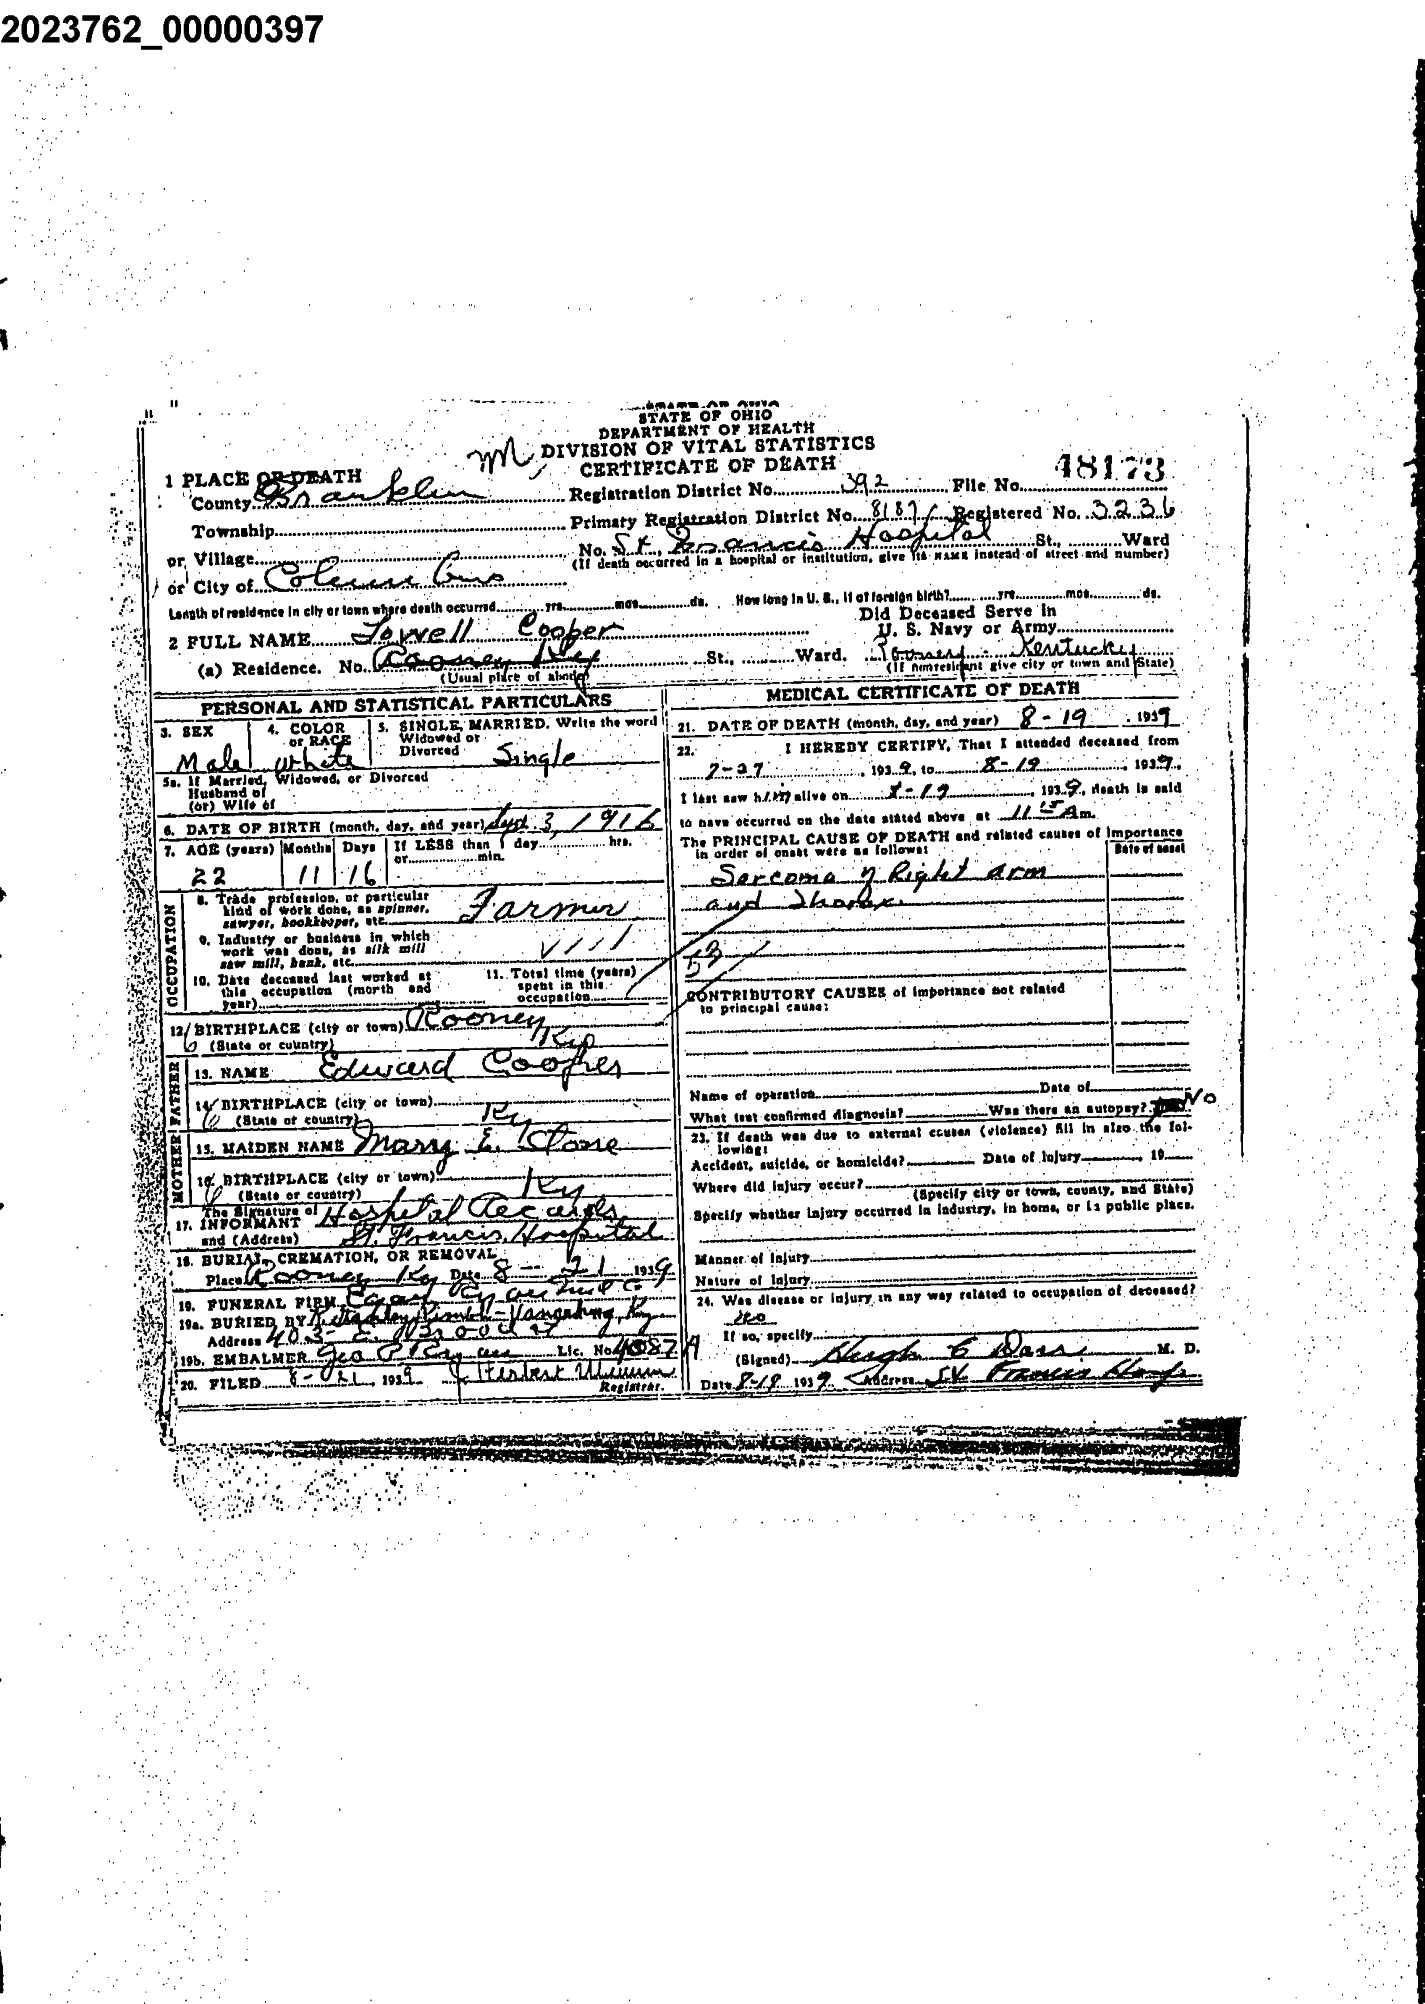 2023762_00000397
STATE OF OHIO
DEPARTMENT OF HEALTH
DIVISION OF VITAL STATISTICS
CERTIFICATE OF DEATH
48173
1 PLACE OF DEATH
County Franklin Registration District No. 392 File No.
Township Primary Registration District No. 8187 Registered No. 3236
or Village No. St Francis Hospital St., Ward
(If death occurred in a hospital or institution, give its NAME instead of street and number)
or City of Columbus
Length of residence in city or town where death occurred yrs. mos. ds. How long in U. S., if of foreign birth? yrs. mos. ds.
Did Deceased Serve in
U. S. Navy or Army
2 FULL NAME Lowell Cooper
(a) Residence. No. Rooney Ky St., Ward. Kentucky
(Usual place of abode) (If nonresident give city or town and State)
PERSONAL AND STATISTICAL PARTICULARS
3. SEX Male
4. COLOR or RACE white
5. SINGLE, MARRIED. Write the word
Widowed or
Divorced Single
5a. If Married, Widowed, or Divorced
Husband of
(or) Wife of
6. DATE OF BIRTH (month, day, and year) Sept. 3, 1916
7. AGE (years) Months Days If LESS than 1 day hrs.
or min.
22 11 16
OCCUPATION
8. Trade profession, or particular
kind of work done, as spinner,
sawyer, bookkeeper, etc. Farmer
9. Industry or business in which
work was done, as silk mill
saw mill, bank, etc.
10. Date deceased last worked at
this occupation (month and
year)
11. Total time (years)
spent in this
occupation
12. BIRTHPLACE (city or town) Rooney
(State or country) Ky
FATHER
13. NAME Edward Cooper
14. BIRTHPLACE (city or town)
(State or country) Ky
MOTHER
15. MAIDEN NAME Mary E. Stone
16. BIRTHPLACE (city or town)
(State or country) Ky
The Signature of
17. INFORMANT Hospital Records
and (Address) St. Francis Hospital
18. BURIAL, CREMATION, OR REMOVAL
Place Rooney Ky Date 8-21 1939
19. FUNERAL FIRM
19a. BURIED BY Vanceburg, Ky
Address 403 E. Broad St
19b. EMBALMER Geo Ryan Lic. No. 4087 A
20. FILED 8-21, 1939
Registrar.
MEDICAL CERTIFICATE OF DEATH
21. DATE OF DEATH (month, day, and year) 8-19, 1939
22. I HEREBY CERTIFY, That I attended deceased from
7-27, 1939, to 8-19, 1939.
I last saw him alive on 8-19, 1939, death is said
to have occurred on the date stated above at 11 15 Am.
The PRINCIPAL CAUSE OF DEATH and related causes of importance
in order of onset were as follows: Date of onset
Sarcoma of Right arm
and Thorax.
53
CONTRIBUTORY CAUSES of importance not related
to principal cause:
Name of operation Date of
What test confirmed diagnosis? Was there an autopsy? No
23. If death was due to external causes (violence) fill in also the following:
Accident, suicide, or homicide? Date of injury 19
Where did injury occur?
(Specify city or town, county, and State)
Specify whether injury occurred in industry, in home, or in public place.
Manner of Injury
Nature of Injury
24. Was disease or injury in any way related to occupation of deceased?
no
If so, specify
(Signed) Hugh E M. D.
Date 8-19 1939 Address St Francis Hosp.